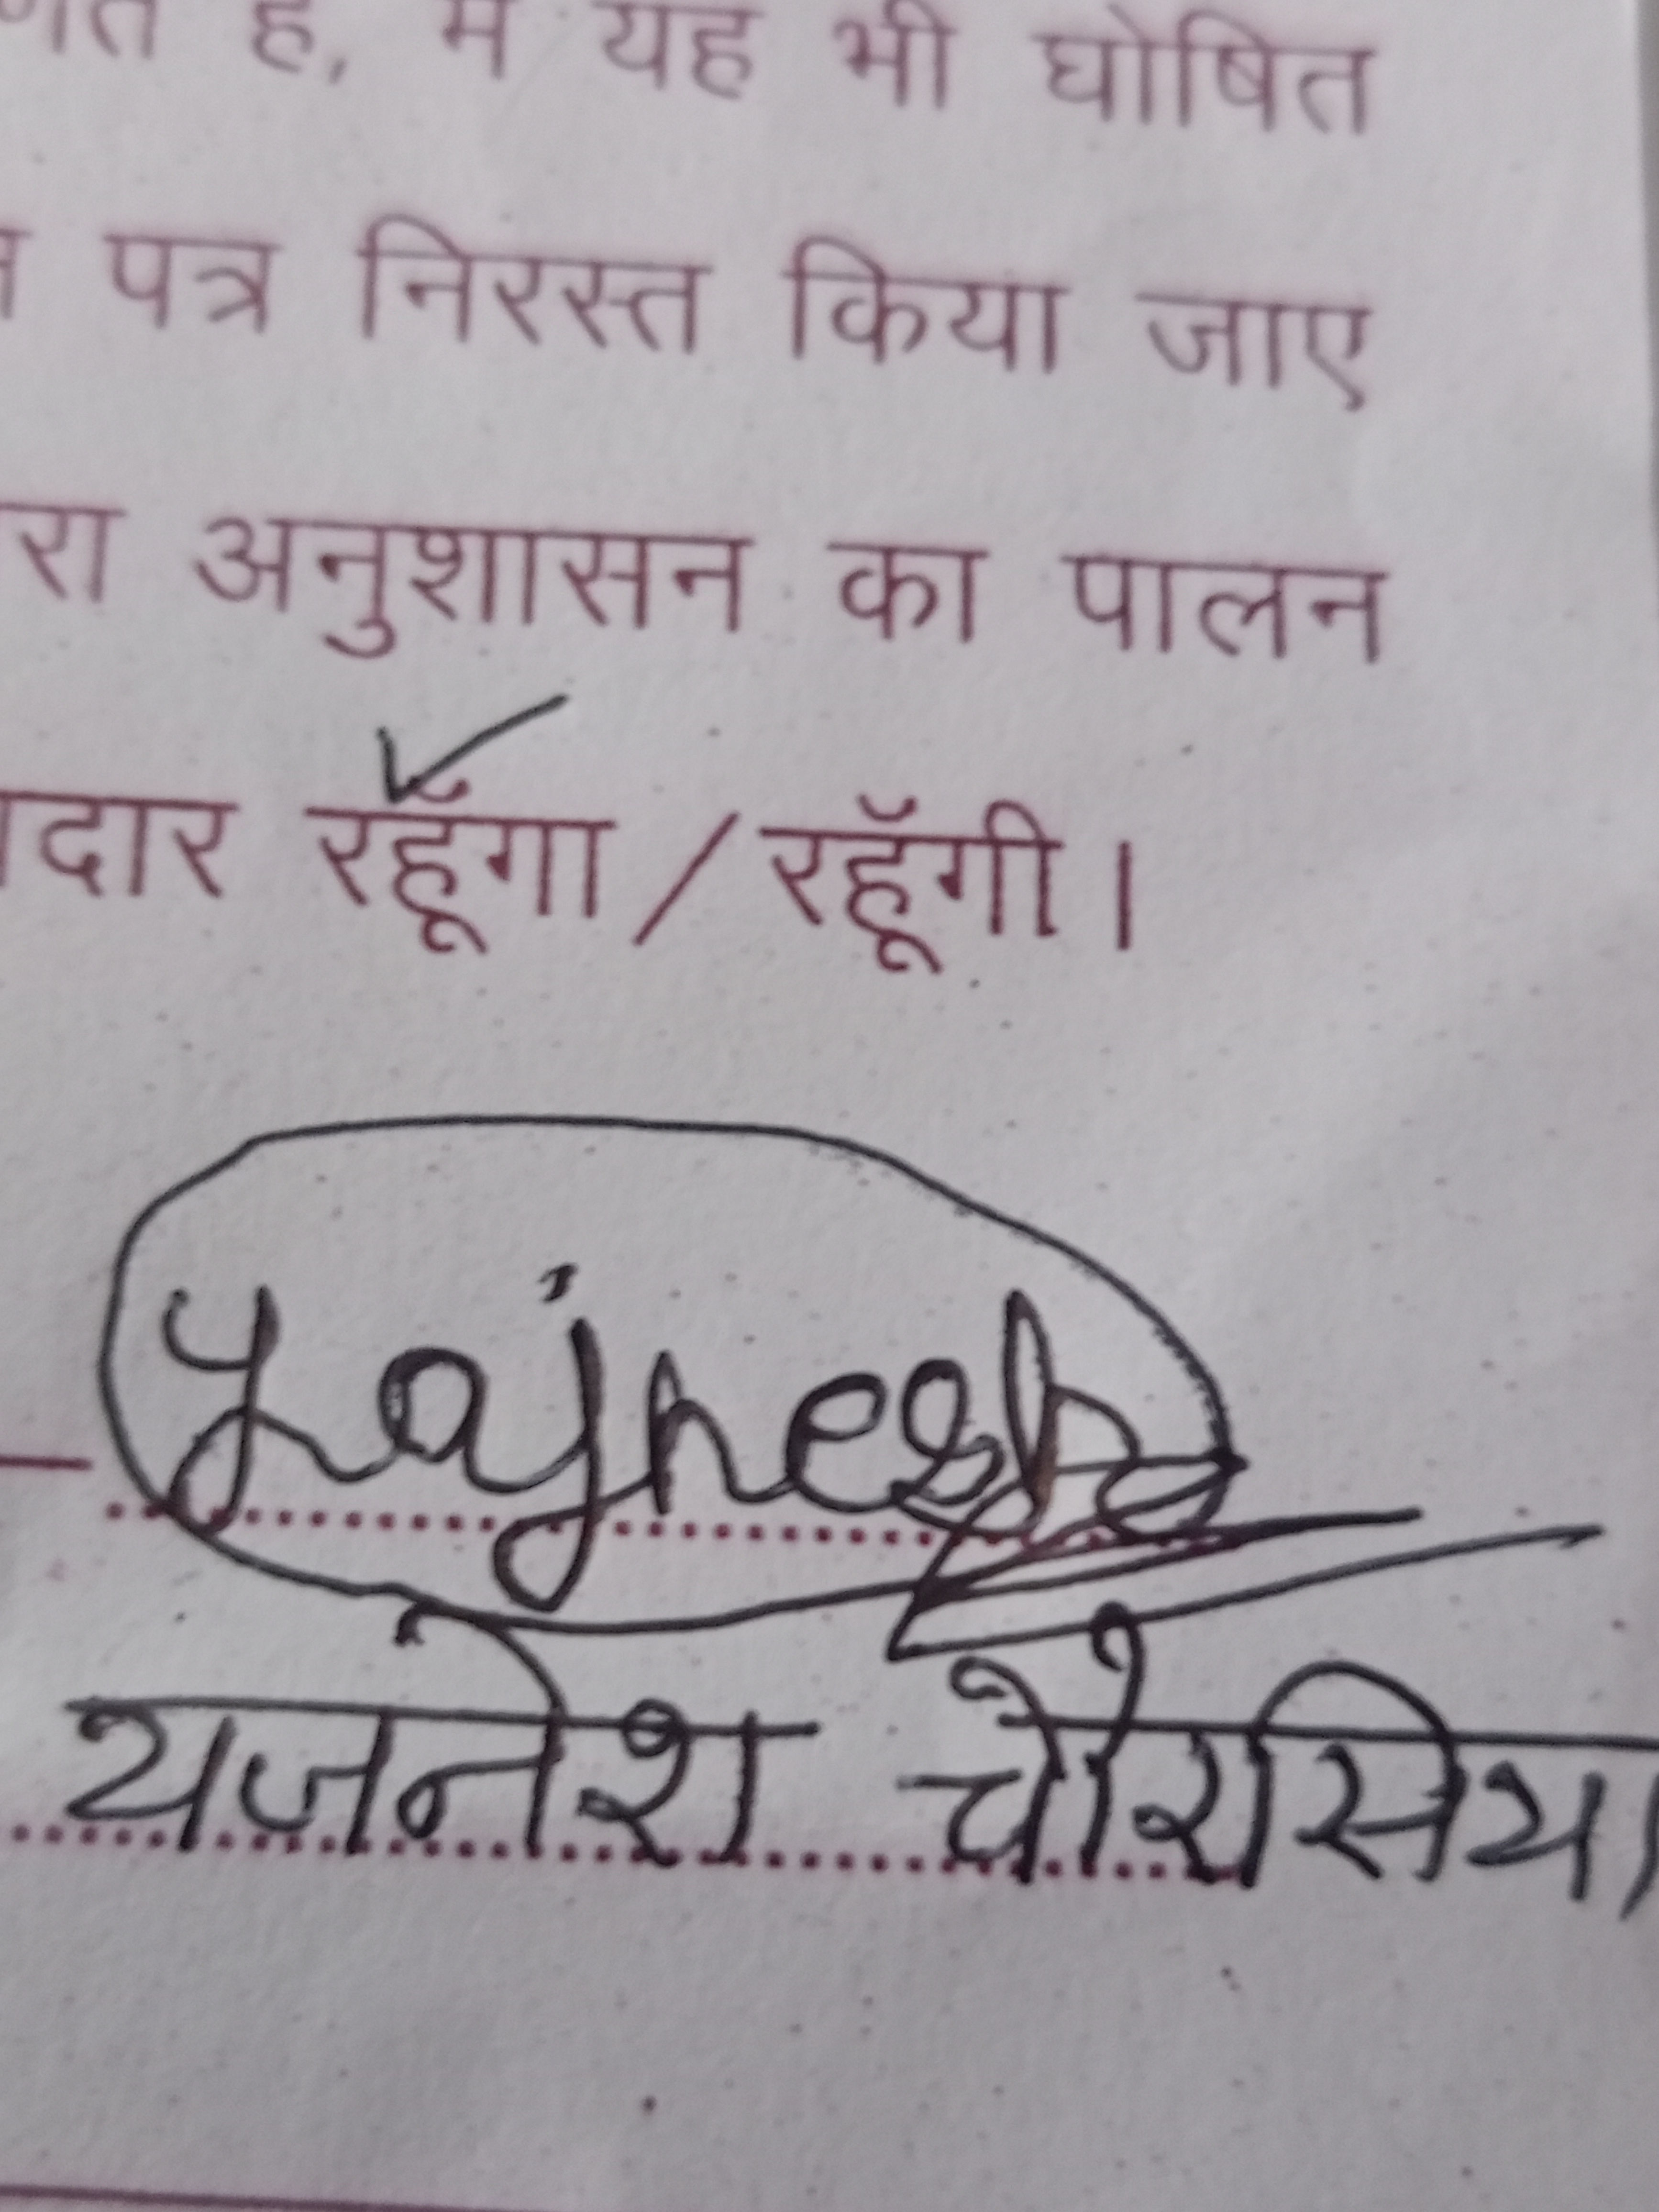 है, में यह भी घोषित
पत्र निरस्त किया जाए
अनुशासन का पालन
रहूँगा / रहूँगी।
Yajnesh
यजनेश चौरसिया